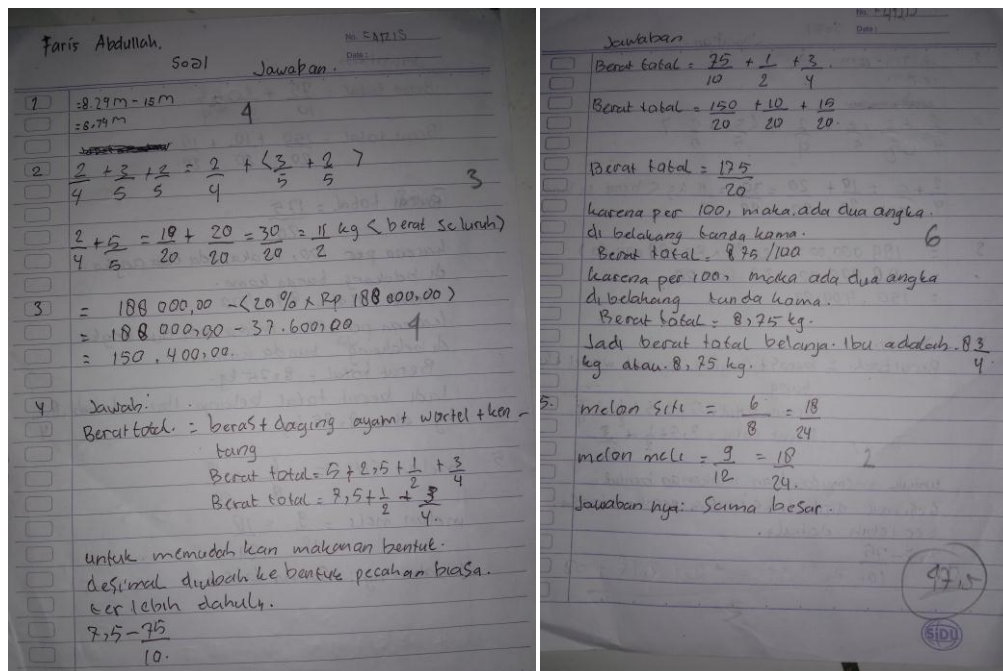 Faris Abdullah.
No. = ARIS
Date:
Soal Jawaban.
1 = 8.29 m - 15 m
= 8,79 m
4
2 2/4 + 3/5 + 2/5 = 2/4 + < 3/5 + 2/5 >
3
2/4 + 5/5 = 10/20 + 20/20 = 30/20 = 1 1/2 kg < berat seluruh >
3 = 188 000,00 - < 20% x Rp 188 000,00 >
= 188 000,00 - 37.600,00
4
= 150.400,00.
4 Jawab:
Berat total. = beras + daging ayam + wortel + ken -
tang
Berat total = 5 + 2,5 + 1/2 + 3/4
Berat total = 7,5 + 1/2 + 3/4.
untuk memudah kan makanan bentuk.
desimal diubah ke bentuk pecahan biasa.
ter lebih dahulu.
7,5 - 75/10.
Date:
Jawaban
Berat total = 75/10 + 1/2 + 3/4.
Berat total = 150/20 + 10/20 + 15/20.
Berat total = 175/20
karena per 100, maka ada dua angka.
di belakang tanda koma.
6
Berat total = 875/100
karena per 100, maka ada dua angka
di belakang tanda koma.
Berat total = 8,75 kg.
Jadi berat total belanja. Ibu adalah. 8 3/4
kg atau. 8,75 kg.
5. melon siti = 6/8 = 18/24
melon meli = 9/12 = 18/24.
2
Jawaban nya: Sama besar.
97,5
SiDU